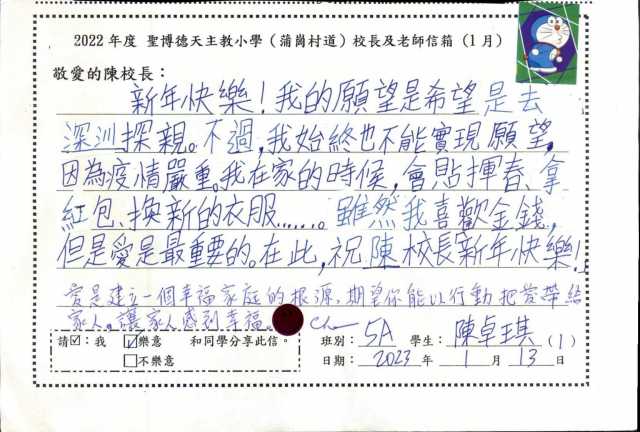 2022 年度 聖博德天主教小學（蒲崗村道）校長及老師信箱（1 月）
敬愛的陳校長：
新年快樂！我的願望是希望是去
深圳探親。不過，我始終也不能實現願望，
因為疫情嚴重。我在家的時候，會貼揮春、拿
紅包、換新的衣服……。雖然我喜歡金錢，
但是愛是最重要的。在此，祝陳校長新年快樂！
愛是建立一個幸福家庭的根源，期望你能以行動把愛帶給
家人。讓家人感到幸福。
請☑：我 ☑樂意 和同學分享此信。 班別：5A 學生：陳卓琪（1）
□不樂意 日期：2023 年 1 月 13 日